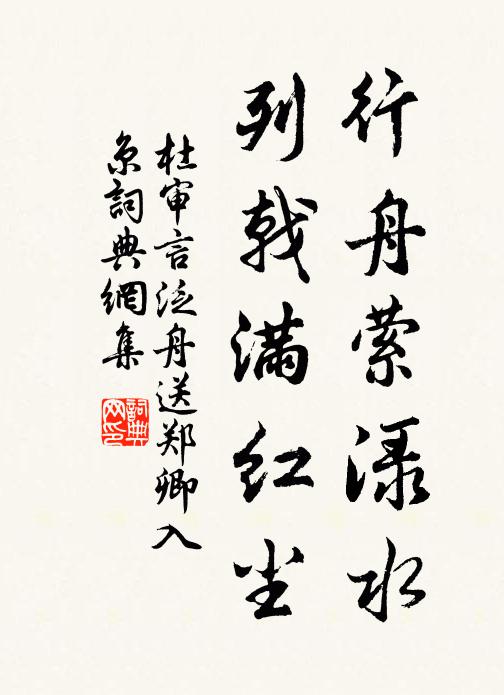 行舟萦渌水
列戟满红尘
杜审言泛舟送郑卿入
京词典網集
詞典網印